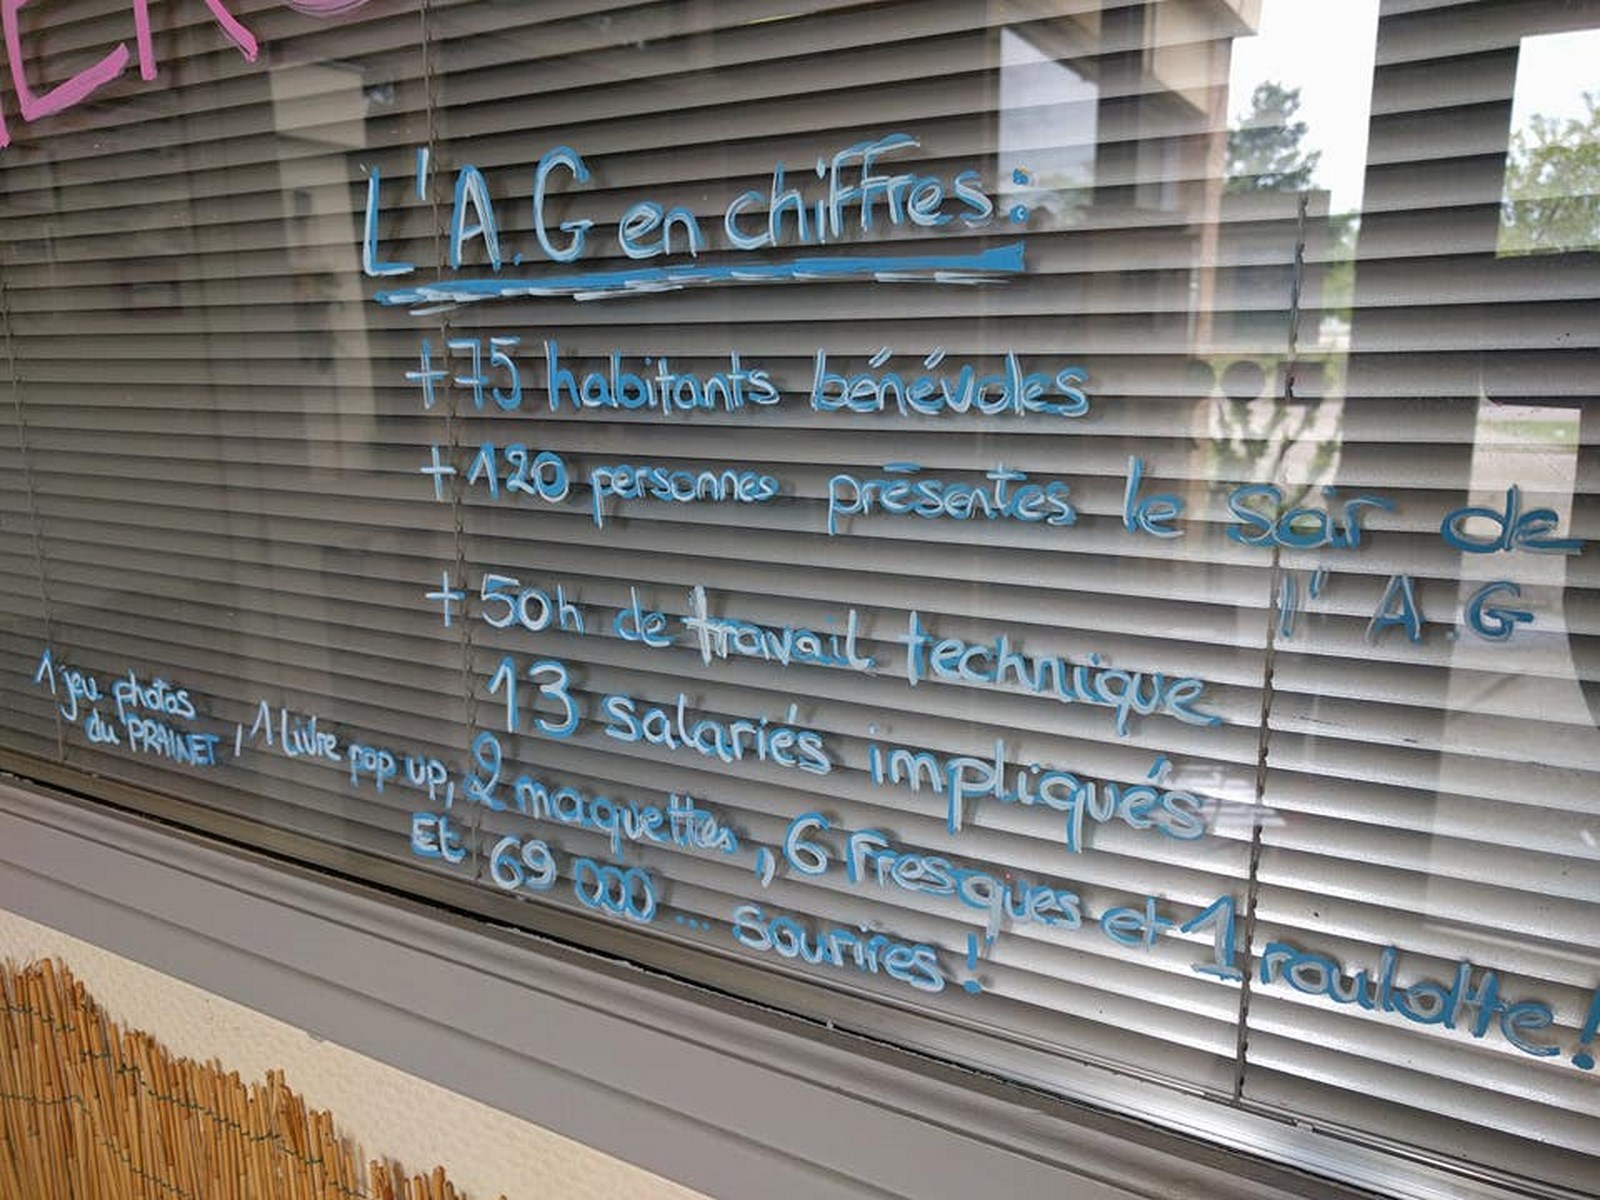 L'A.G en chiffres :
+75 habitants bénévoles
+120 personnes présentes le soir de
l'A.G
+50h de travail technique
13 salariés impliqués
1 jeu photos
du PRAINET, 1 livre pop up, 2 maquettes, 6 fresques et 1 roulotte !
Et 69 000 ... sourires !